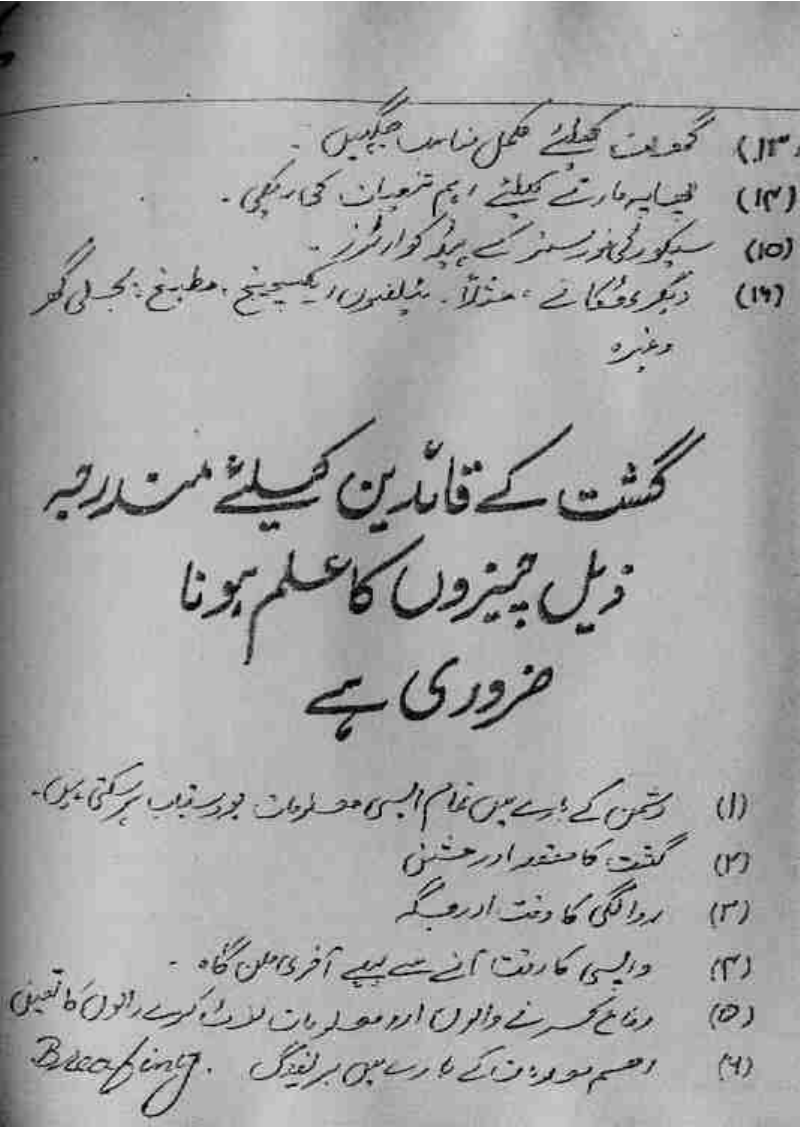 (۱۳) گھات کیلئے مکمل مناسب جگہیں -
(۱۴) چھاپہ مارنے کیلئے اہم کی ریکی -
(۱۵) سیکورٹی فورسز کے ہیڈ کوارٹرز -
(۱۶) دیگر ٹھکانے ، مثلاً - ٹیلفون ایکسچینج ، مطبخ ، بجلی گھر
وغیرہ
گشت کے قائدین کیلئے مندرجہ
ذیل چیزوں کا علم ہونا
ضروری ہے
(۱) دشمن کے بارے میں تمام ایسی معلومات جو دستیاب ہو سکتی ہیں -
(۲) گشت کا مقصد اور مشن
(۳) روانگی کا وقت اور جگہ
(۴) واپسی کا وقت آنے سے پہلے آخری ملن گاہ -
(۵) دفاع کرنے والوں اور معلومات کرنے والوں کا تعین
(۶) اہم کے بارے میں بریفنگ . Breafing.